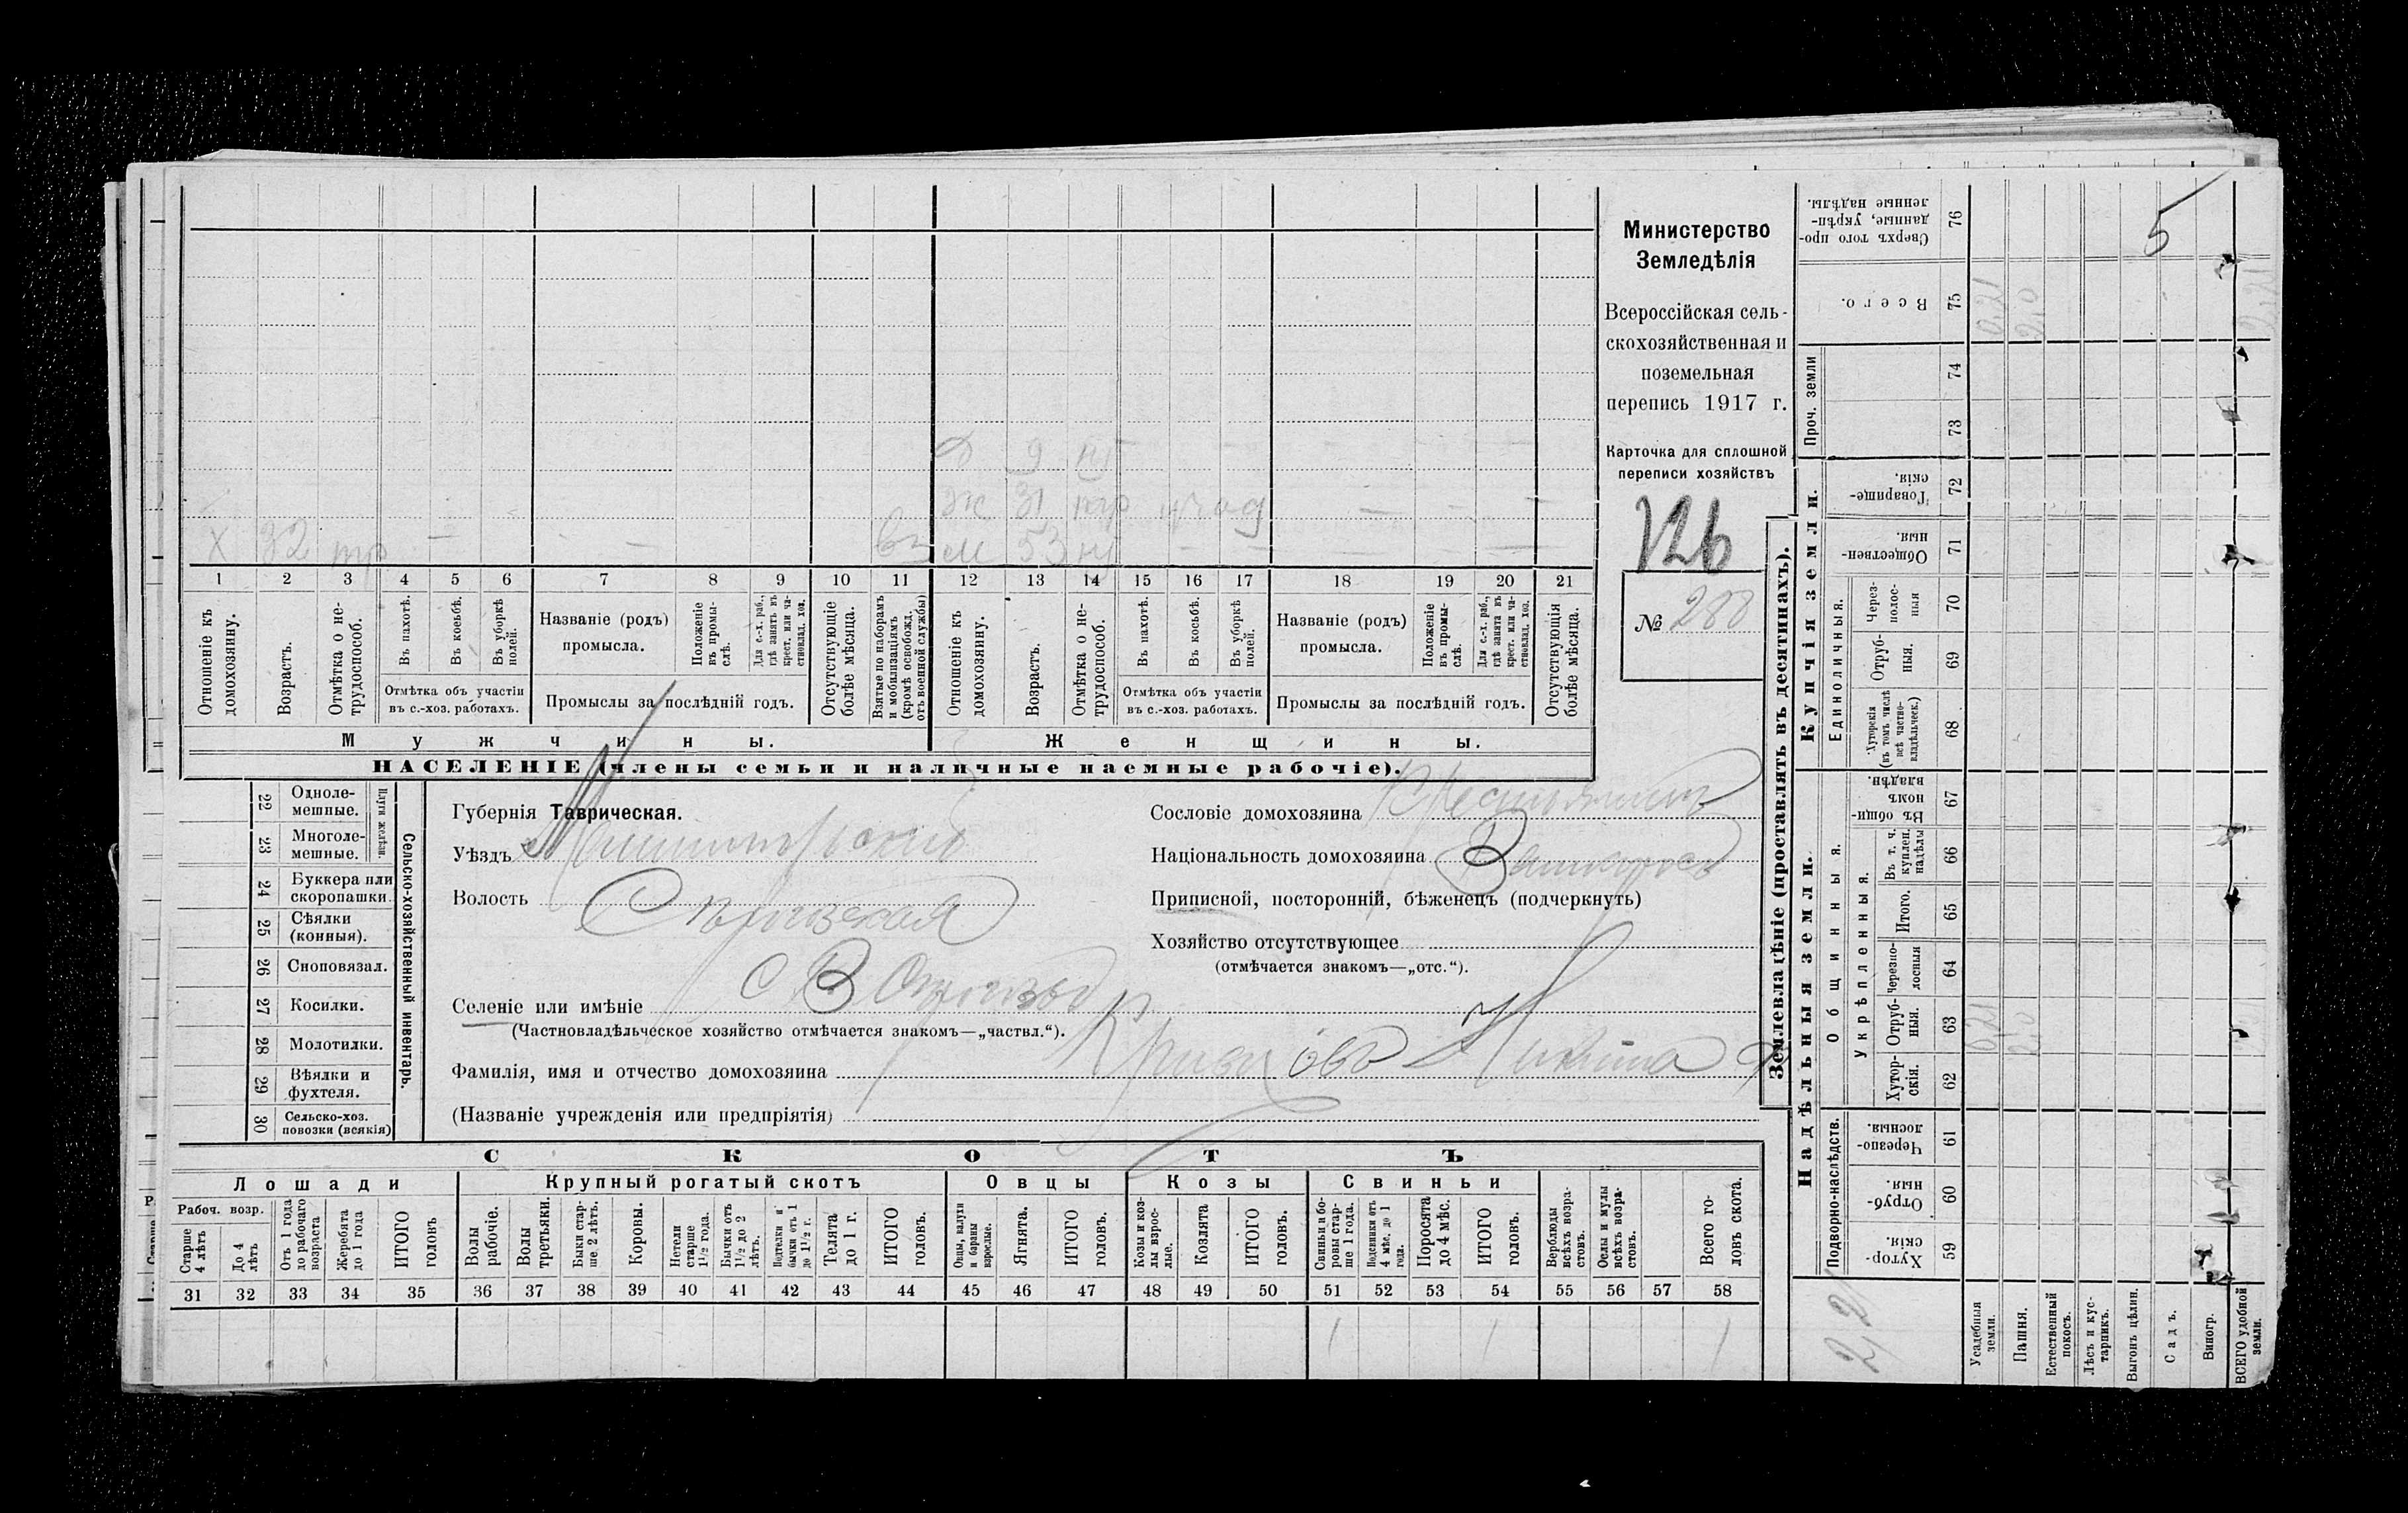 Министерство
Земледѣлія
Всероссійская сель-
скохозяйственная и
поземельная
перепись 1917 г.
Карточка для сплошной
переписи хозяйствъ
126
№ 288
5
Д 9 нт
ж 31 тр
Х 32 тр — — — вз М 53 нт — — — —
1 2 3 4 5 6 7 8 9 10 11 12 13 14 15 16 17 18 19 20 21
Отношеніе къ домохозяину.
Возрастъ.
Отмѣтка о не-трудоспособ.
Въ пахотѣ.
Въ косьбѣ.
Въ уборкѣ полей.
Отмѣтка объ участіи въ с.-хоз. работахъ.
Названіе (родъ) промысла.
Положеніе въ промы-слѣ.
Для с.-х. раб., гдѣ занятъ въ крест. или ча-стновлад. хоз.
Промыслы за послѣдній годъ.
Отсутствующіе болѣе мѣсяца.
Взятые по наборамъ и мобилизаціямъ (кромѣ освобожд. отъ военной службы)
Отношеніе къ домохозяину.
Возрастъ.
Отмѣтка о не-трудоспособ.
Въ пахотѣ.
Въ косьбѣ.
Въ уборкѣ полей.
Отмѣтка объ участіи въ с.-хоз. работахъ.
Названіе (родъ) промысла.
Положеніе въ промы-слѣ.
Для с.-х. раб., гдѣ занята въ крест. или ча-стновлад. хоз.
Промыслы за послѣдній годъ.
Отсутствующія болѣе мѣсяца.
Мужчины. Женщины.
НАСЕЛЕНІЕ (члены семьи и наличные наемные рабочіе).
Сельско-хозяйственный инвентарь.
Плуги желѣзн.
22 Одноле-мешные.
23 Многоле-мешные.
24 Буккера или скоропашки.
25 Сѣялки (конныя).
26 Сноповязал.
27 Косилки.
28 Молотилки.
29 Вѣялки и фухтеля.
30 Сельско-хоз. повозки (всякія)
Губернія Таврическая.
Уѣздъ
Волость
Селеніе или имѣніе
(Частновладѣльческое хозяйство отмѣчается знакомъ—„частвл.“).
Фамилія, имя и отчество домохозяина
Никита
(Названіе учрежденія или предпріятія)
Сословіе домохозяина Крестьянинъ
Національность домохозяина
Приписной, посторонній, бѣженецъ (подчеркнуть)
Хозяйство отсутствующее
(отмѣчается знакомъ—„отс.“).
СКОТЪ
Лошади Крупный рогатый скотъ Овцы Козы Свиньи
Рабоч. возр.
Старше 4 лѣтъ
До 4 лѣтъ
Отъ 1 года до рабочаго возраста
Жеребята до 1 года
ИТОГО головъ
Волы рабочіе.
Волы третьяки.
Быки стар-ше 2 лѣтъ.
Коровы.
Нетели старше 1½ года.
Бычки отъ 1½ до 2 лѣтъ.
Подтелки и бычки отъ 1 до 1½ г.
Телята до 1 г.
ИТОГО головъ.
Овцы, валухи и бараны взрослые.
Ягнята.
ИТОГО головъ.
Козы и коз-лы взрос-лые.
Козлята
ИТОГО головъ.
Свиньи и бо-ровы стар-ше 1 года.
Подсвинки отъ 4 мѣс. до 1 года.
Поросята до 4 мѣс.
ИТОГО головъ.
Верблюды всѣхъ возра-стовъ.
Ослы и мулы всѣхъ возра-стовъ.
Всего го-ловъ скота.
31 32 33 34 35 36 37 38 39 40 41 42 43 44 45 46 47 48 49 50 51 52 53 54 55 56 57 58
1 1 1
Землевладѣніе (проставлять въ десятинахъ).
Надѣльныя земли. Купчія земли.
Проч. земли
Подворно-наслѣдств.
Общинныя.
Укрѣпленныя.
Единоличныя.
Сверхъ того про-данные, укрѣп-ленные надѣлы. 76
Всего. 75
74
73
Товарище-скія. 72
Обществен-ныя. 71
Через-полос-ныя 70
Отруб-ныя. 69
Хуторскія (въ томъ числѣ всѣ частно-владѣльческ.) 68
Въ общи-номъ владѣн. 67
Въ т. ч. куплен. надѣлы 66
Итого. 65
Черезпо-лосныя 64
Отруб-ныя. 63
Хутор-скія. 62
Черезпо-лосныя. 61
Отруб-ныя. 60
Хутор-скія. 59
0,21
2,0
2,21
0,21
2,0
2,21
Усадебныя земли.
Пашня.
Естественный покосъ.
Лѣсъ и кус-тарникъ.
Выгонъ цѣлин.
Садъ.
Виногр.
ВСЕГО удобной земли.